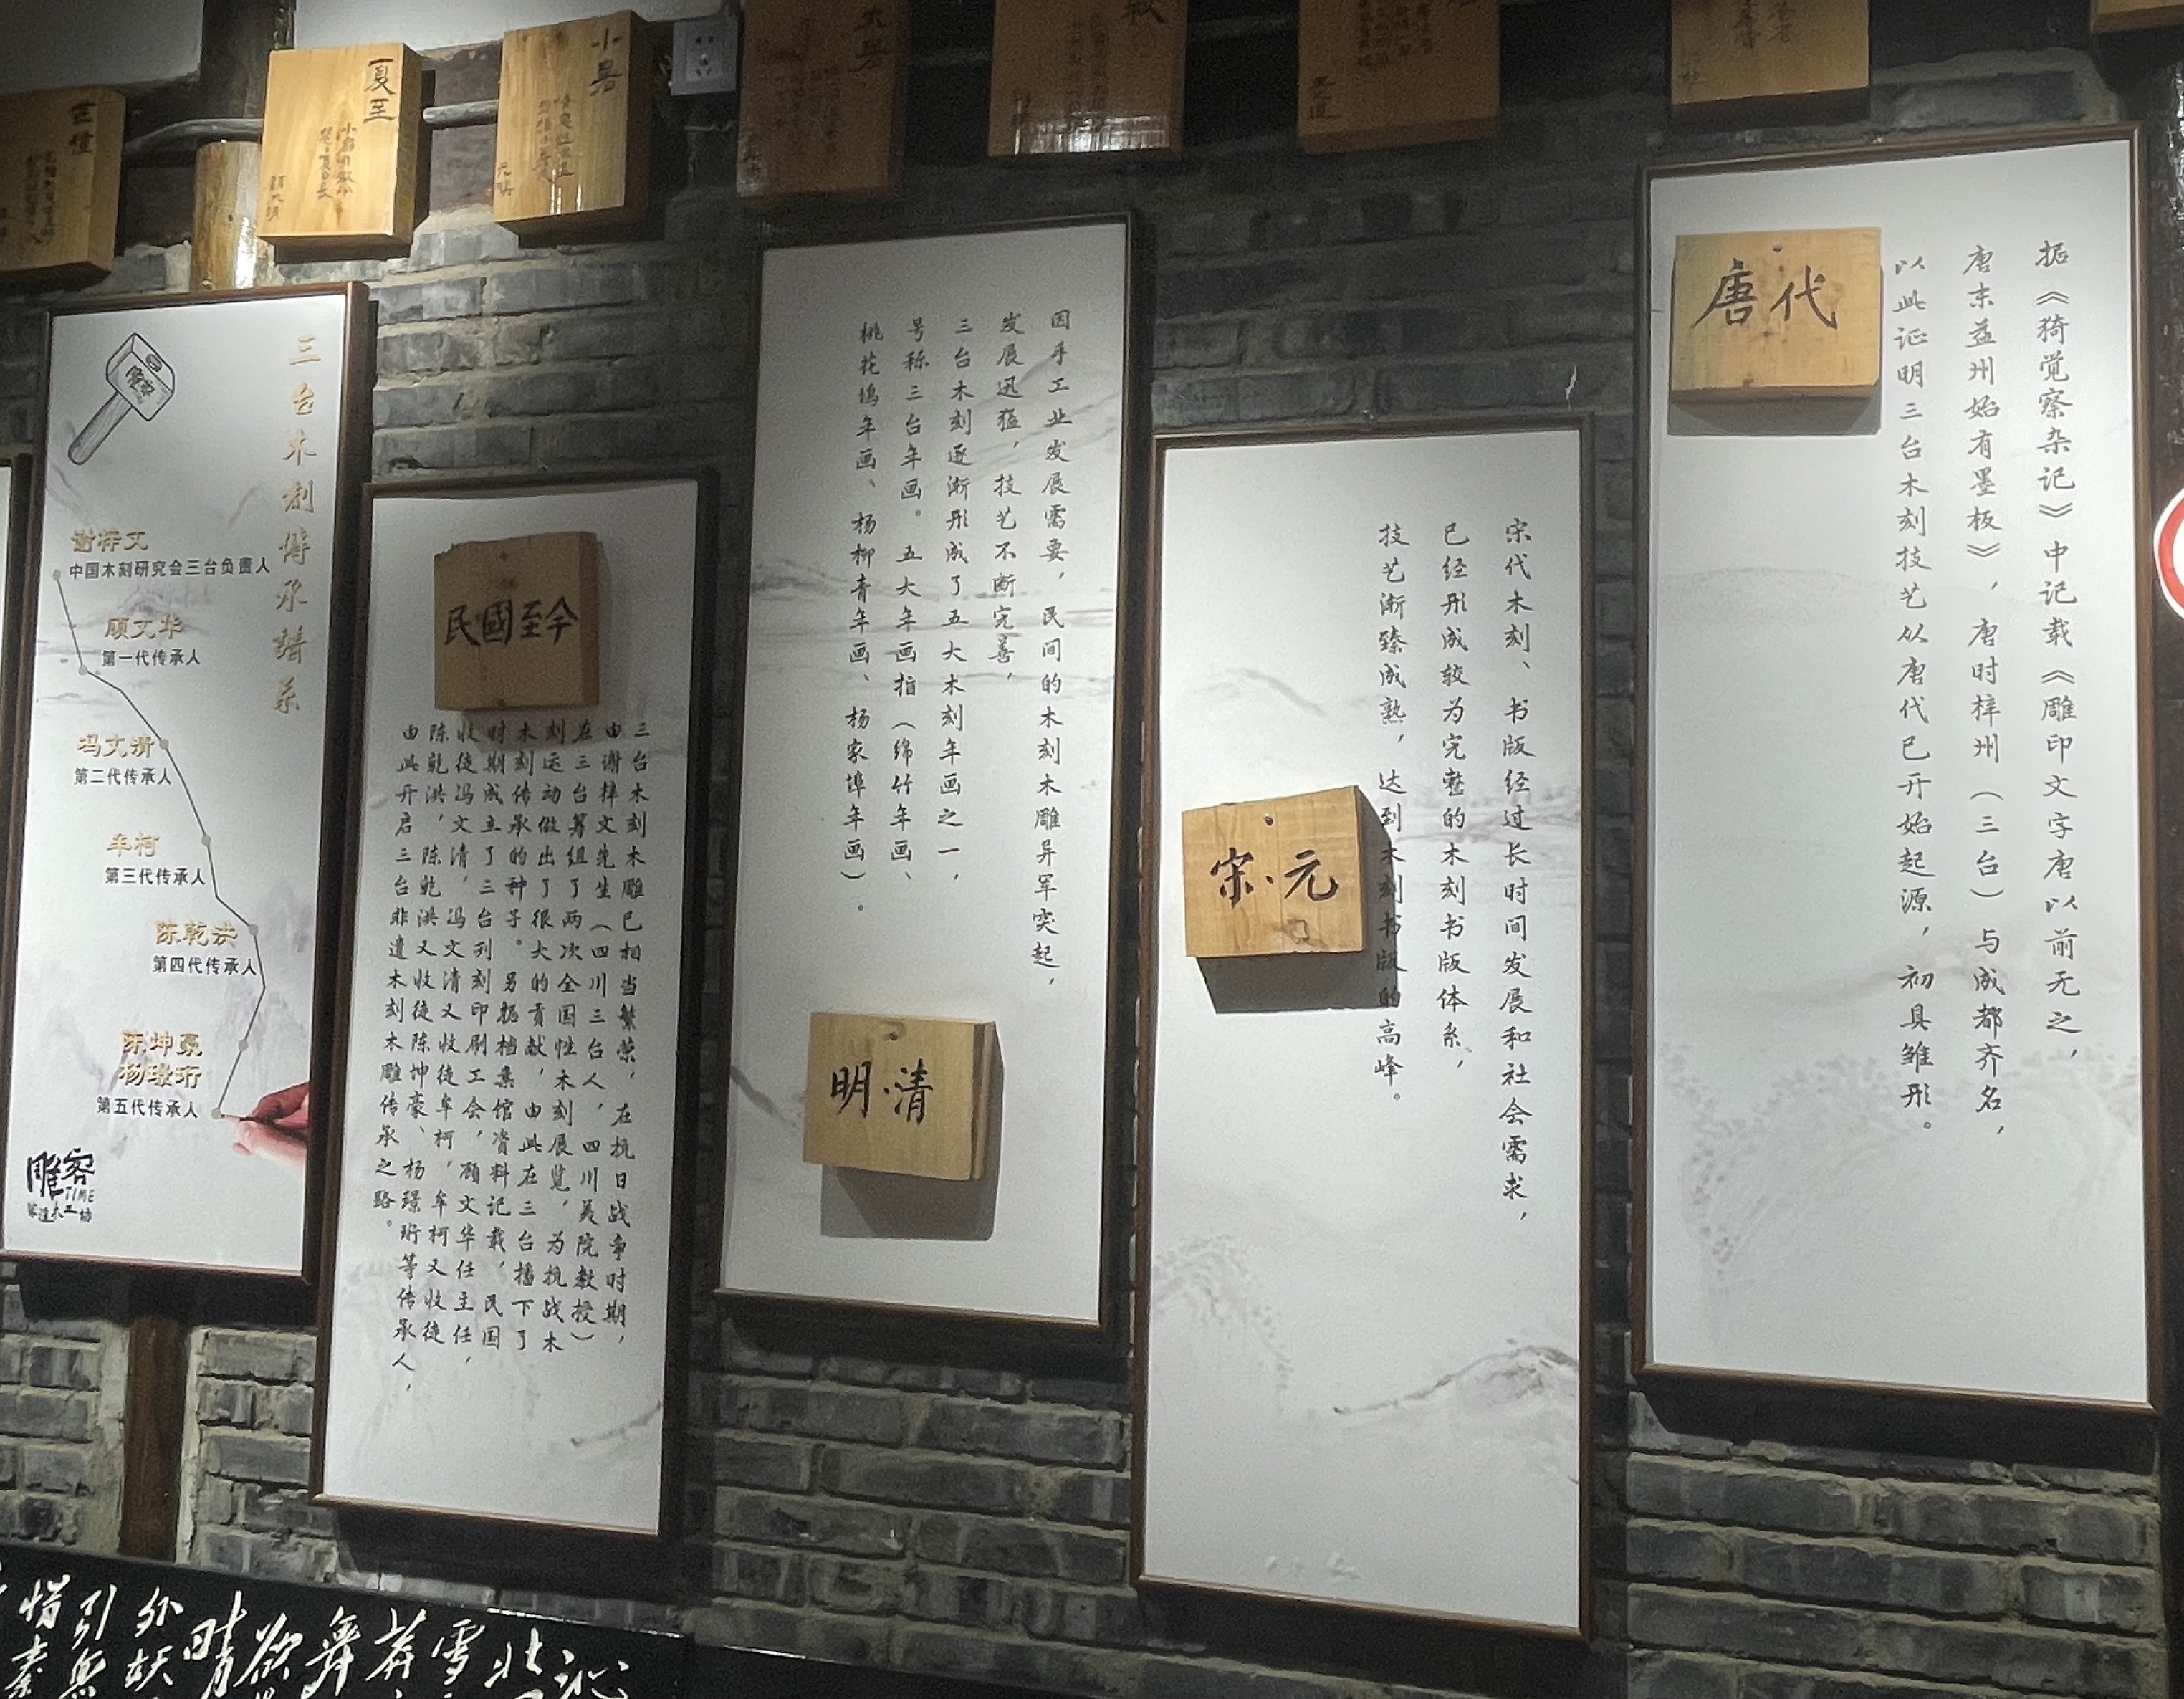 唐代
据《猗觉察杂记》中记载《雕印文字唐以前无之，
唐末益州始有墨板》，唐时梓州（三台）与成都齐名，
以此证明三台木刻技艺从唐代已开始起源，初具雏形。
宋·元
宋代木刻、书版经过长时间发展和社会需求，
已经形成较为完整的木刻书版体系，
技艺渐臻成熟，达到木刻书版的高峰。
因手工业发展需要，民间的木刻木雕异军突起，
发展迅猛，技艺不断完善，
三台木刻逐渐形成了五大木刻年画之一，
号称三台年画。五大年画指（绵竹年画、
桃花坞年画、杨柳青年画、杨家埠年画）。
明·清
民國至今
三台木刻木雕已相当繁荣，在抗日战争时期，
由谢梓文先生（四川三台人，四川美院教授）
在三台筹组了两次全国性木刻展览，为抗战木
刻运动做出了很大的贡献，由此在三台播下了
木刻传承的种子。另据档案馆资料记载，民国
时期成立了三台刊刻印刷工会，顾文华任主任，
收徒冯文清，冯文清又收徒牟柯，牟柯又收徒
陈乾洪，陈乾洪又收徒陈坤豪、杨璟珩等传承人，
由此开启三台非遗木刻木雕传承之路。
三台木刻传承谱系
谢梓文
中国木刻研究会三台负责人
顾文华
第一代传承人
冯文清
第二代传承人
牟柯
第三代传承人
陈乾洪
第四代传承人
陈坤豪
杨璟珩
第五代传承人
雕客
TIME
夏至
小暑
元稹
沁
北
雪
莽
舞
欲
晴
外
妖
引
惜
秦